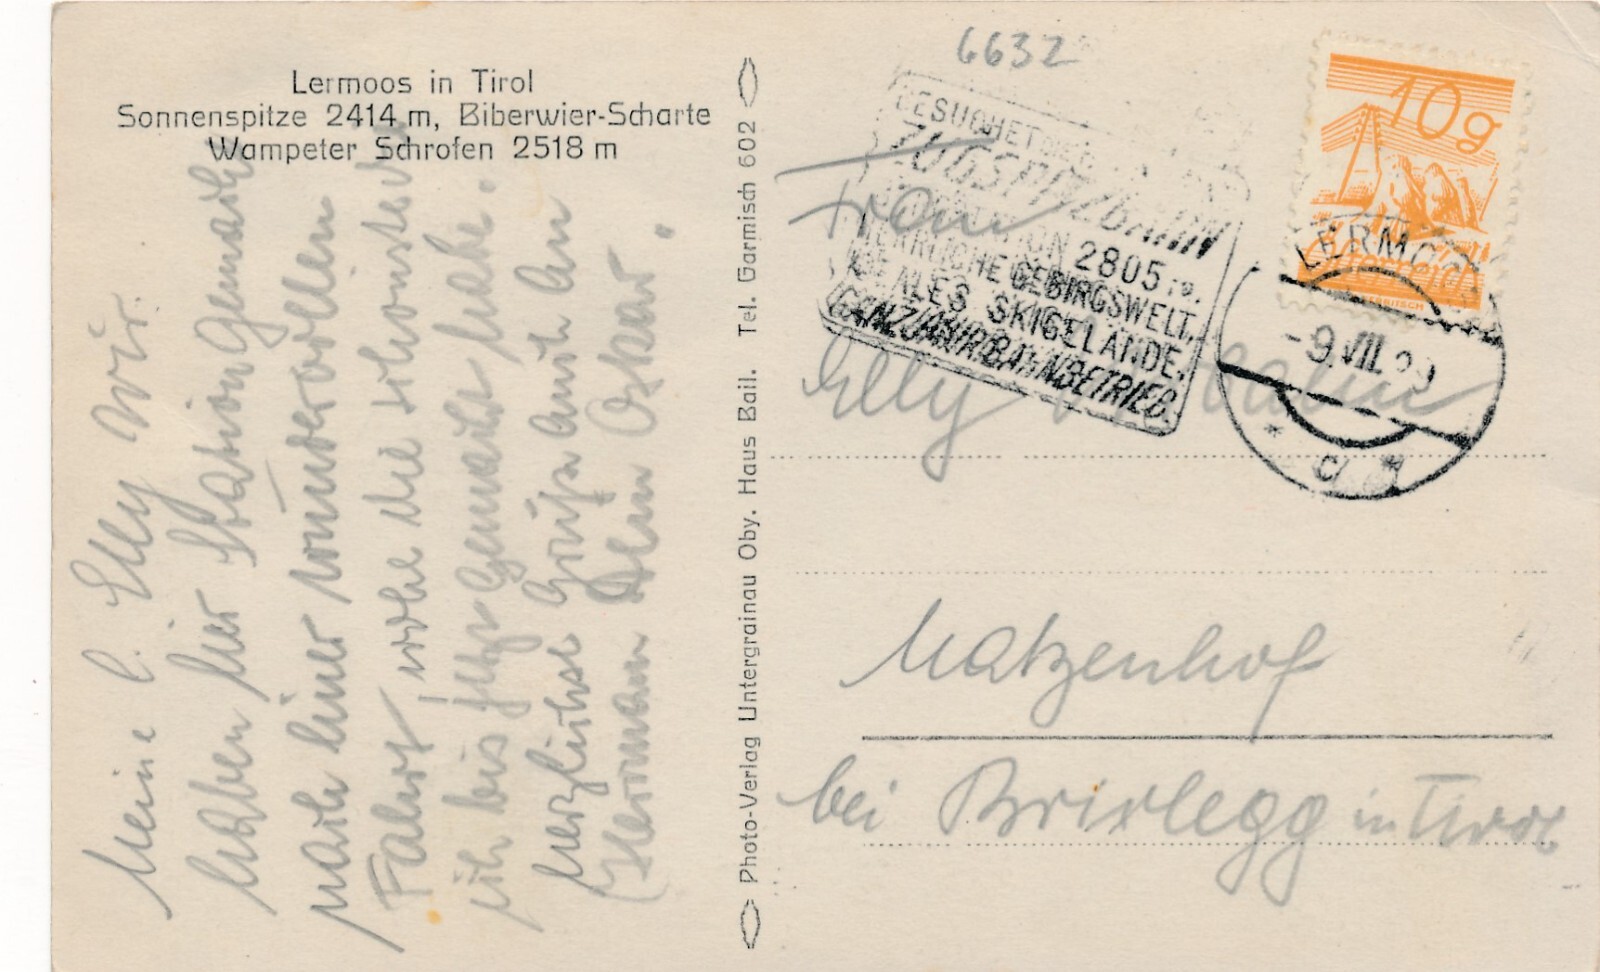 Lermoos in Tirol
Sonnenspitze 2414 m, Biberwier-Scharte
Wampeter Schrofen 2518 m
Meine l. Elly Wir
haben hier Station Gemacht
nach einer wundervollen
Fahrt, welche die schönste die
ich bis jetzt Gemacht habe.
herzlichst Grüße auch an
Herman Dein Oskar.
Photo-Verlag Untergrainau Oby. Haus Bail. Tel. Garmisch 602
6632
BESUCHET DIE
ZUGSPITZBAHN
STATION 2805 m.
HERRLICHE GEBIRGSWELT,
IDEALES SKIGELÄNDE,
GANZJAHRBAHNBETRIEB.
10g
Österreich
LERMOOS
-9.VII.
Frau
Elly
Matzenhof
bei Brixlegg in Tirol